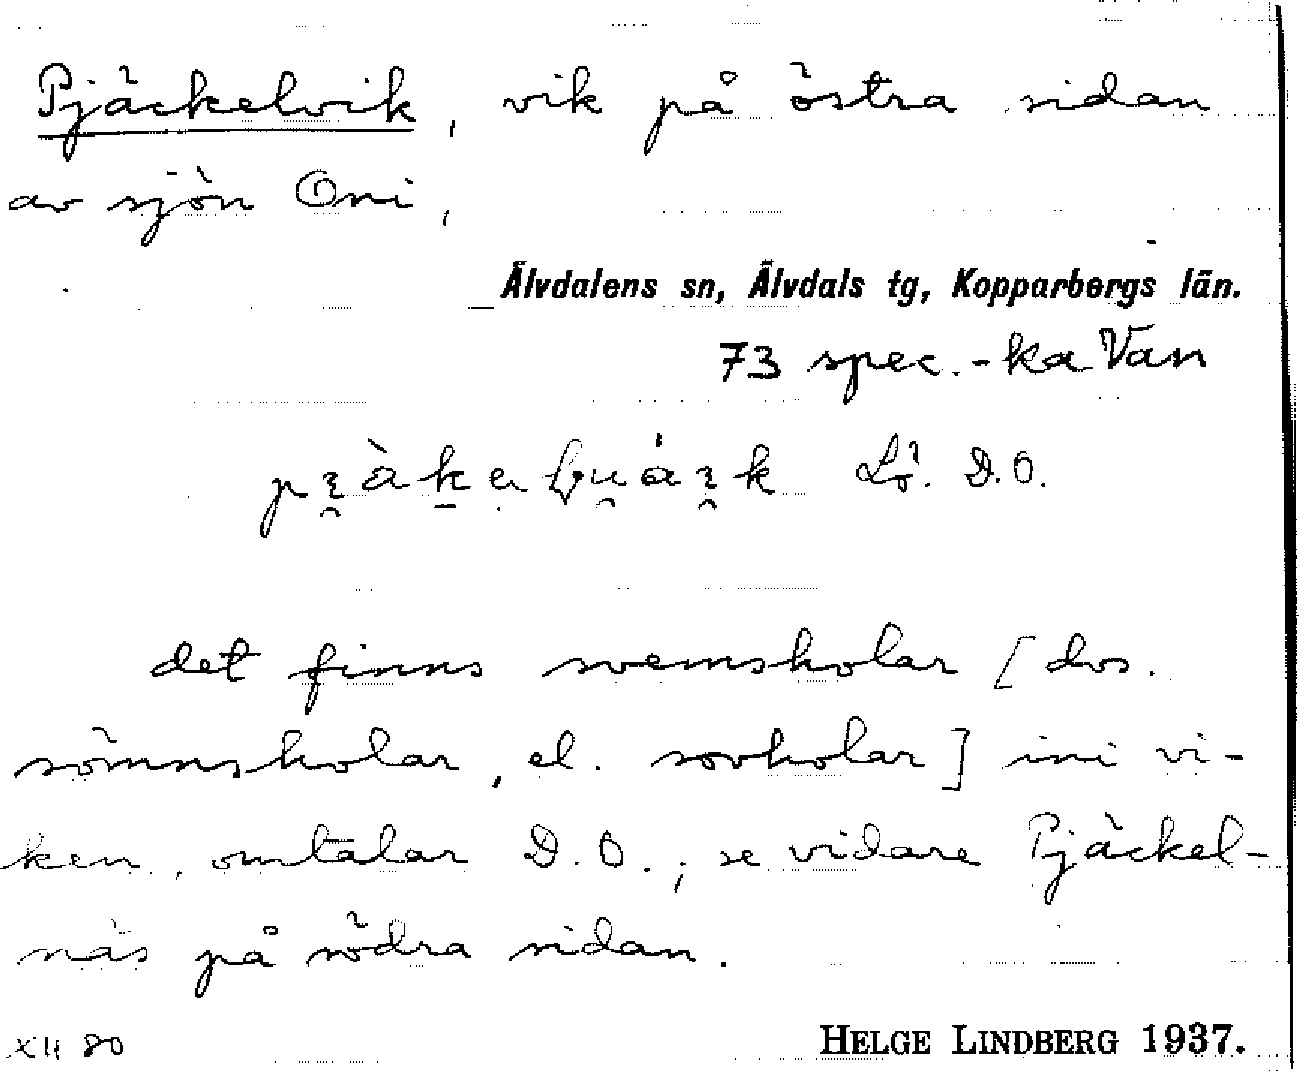 Pjäckelvik, vik på östra sidan
av sjön Oni,
Älvdalens sn, Älvdals tg, Kopparbergs län.
73 spec.-ka Vän
D.O.
det finns svemskolar [dvs.
sömnskolar, el. sovkolar] ini vi-
ken, omtalar D.O.; se vidare Pjäckel-
näs på södra sidan.
80
HELGE LINDBERG 1937.